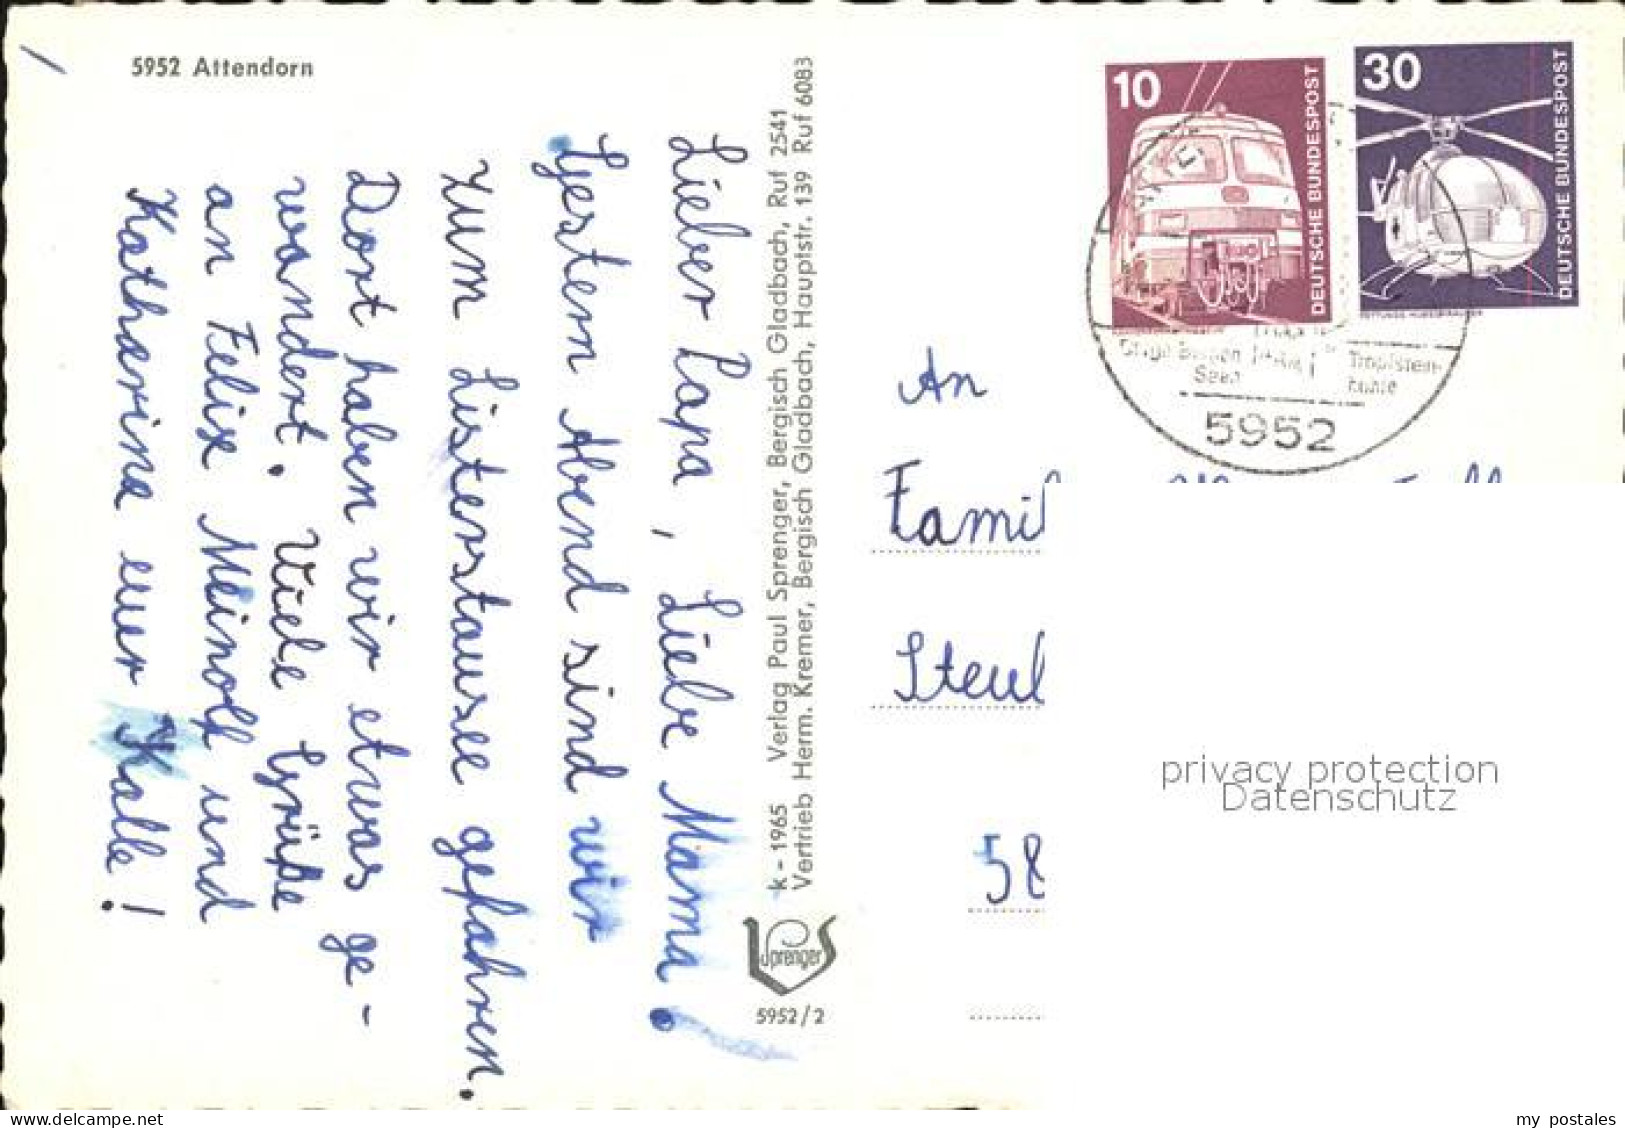 5952 Attendorn
Lieber Papa, Liebe Mama!
Gestern Abend sind wir
zum Listerstausee gefahren.
Dort haben wir etwas ge-
wandert. Viele Grüße
an Felix Meinolf und
Katharina euer Kalle!
k - 1965 Verlag Paul Sprenger, Bergisch Gladbach, Ruf 2541
Vertrieb Herm. Kremer, Bergisch Gladbach, Hauptstr. 139 Ruf 6083
Sprenger
5952/2
10
DEUTSCHE BUNDESPOST
30
DEUTSCHE BUNDESPOST
Seen
Tropfstein-
höhle
5952
An
Famil
Steub
58
privacy protection
Datenschutz
my postales